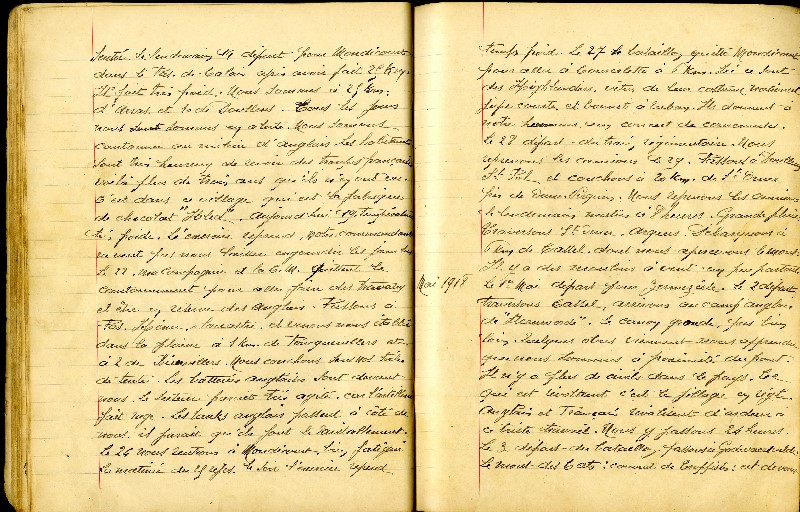 le lendemain 19 départ pour Mondicourt
dans le Pas de Calais après avoir fait 28 km.
Il fait très froid. Nous sommes à 25 km
d'Arras et 10 de Doullens. Tous les jours
nous sommes en alerte. Nous sommes
cantonnés au milieu d'anglais. Les habitants
sont très heureux de voir des troupes françaises
voilà plus de trois ans qu'ils n'en ont vu.
C'est dans ce village qu'est la fabrique
de chocolat "Ibled". Aujourd'hui 19 temps
très froid. L'exercice reprend, notre commandant
ne veut pas nous laisser engourdir les jambes
Le 22. Nos compagnies et la C.M. quittent le
cantonnement pour aller faire des travaux
et être en réserve des anglais. Passons à
Pas, et venons nous établir
dans la plaine à 1 km. de
à 2 de Bienvillers. Nous couchons sous nos toiles
de tente. Les batteries anglaises sont devant
nous. Le secteur parait très agité, car l'artillerie
fait rage. Les tanks anglais passent à côté de
nous, il parait qu'ils font le ravitaillement.
Le 24 nous rentrons à Mondicourt, bien fatigués.
La matinée du 25 repos. Le soir l'exercice reprend
temps froid. Le 27 le bataillon quitte Mondicourt
pour aller à à 6 km. Ici ce sont
des Highlanders, vêtus de leur costume national
jupe courte et bonnet à ruban. Ils donnent à
notre honneur, un concert de cornemuses.
Le 28 départ du train régimentaire. Nous
reprenons les camions le 29. Passons à Doullens
St Pol, et couchons à 20 km. de St Omer
près de Nous reprenons les camions
le lendemain matin à 8 heures. Grande pluie
Traversons St Omer, Arques. Débarquons à
6 km de Cassel, dont nous apercevons le mont.
Il y a des moulins à vent un peu partout.
Mai 1918
Le 1er Mai départ pour Zermezeele. Le 2 départ
traversons Cassel, arrivons au camp anglais
de Le canon gronde, pas bien
loin. Quelques obus viennent nous apprendre
que nous sommes à proximité du front.
Il n'y a plus de civils dans le pays. Ce
qui est révoltant c'est le pillage en règle.
Anglais et Français rivalisent d'ardeur à
ce triste travail. Nous y passons 24 heures.
Le 3 départ du bataillon, passons à Godewaersvelde.
Le mont des Cats : couvent de Trappistes : est devant